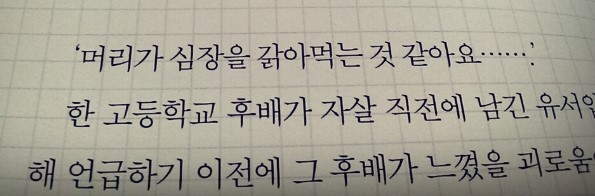 ‘머리가 심장을 갉아먹는 것 같아요…….’
한 고등학교 후배가 자살 직전에 남긴
해 언급하기 이전에 그 후배가 느꼈을